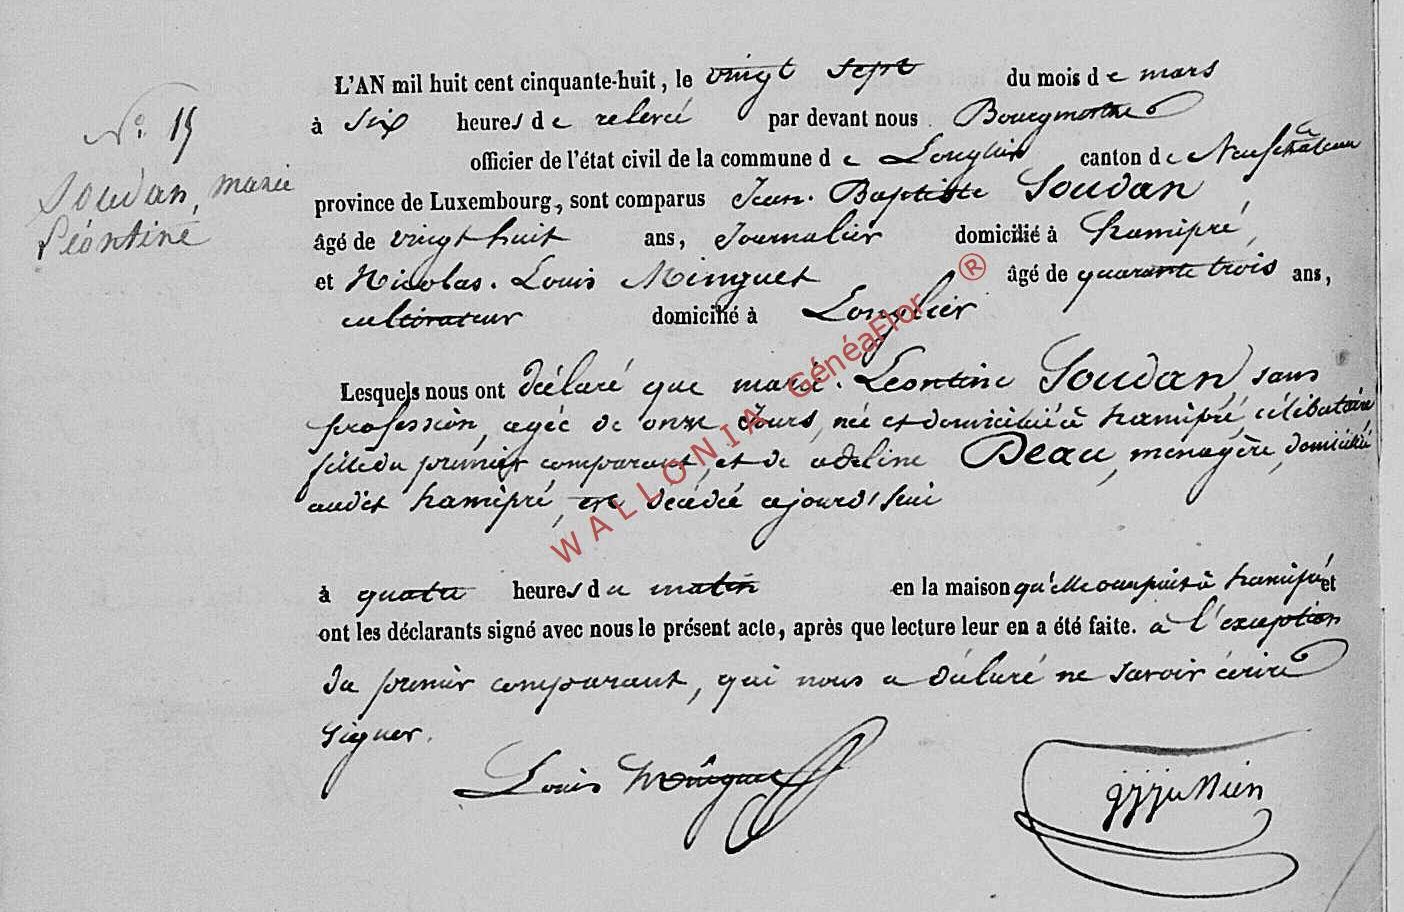 N° 15
Soudan, marie
Léontine
L'AN mil huit cent cinquante-huit, le vingt sept du mois de mars
à six heures de relevé par devant nous Bourgmestre
officier de l'état civil de la commune de Longlier canton de Neufchâteau
province de Luxembourg, sont comparus Jean. Baptiste Soudan
âgé de vingt huit ans, Journalier domicilié à hamipré,
et Nicolas. Louis Minguet âgé de quarante trois ans,
cultivateur domicilié à Longlier
Lesquels nous ont déclaré que marie. Léontine Soudan sans
profession, agée de onze Jours, née et domiciliée à hamipré, célibataire
fille du premier comparant, et de adeline Deau, menagère, domiciliée
audit hamipré, est décédée ajourd'hui
à quatre heures du matin en la maison qu'elle occupait à hamipré et
ont les déclarants signé avec nous le présent acte, après que lecture leur en a été faite. à l'exception
du premier comparant, qui nous a déclaré ne savoir écrire
signer.
Louis Minguet
WALLONIA GénéaFlor ®